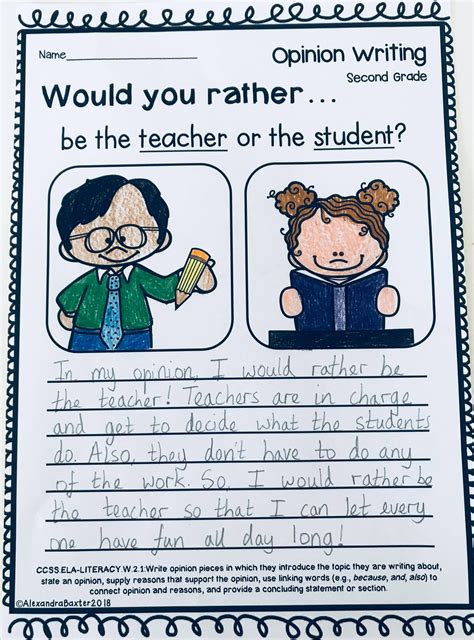 Name
Opinion Writing
Second Grade
Would you rather...
be the teacher or the student?
In my opinion, I would rather be
the teacher! Teachers are in charge
and get to decide what the students
do. Also, they don't have to do any
of the work. So, I would rather be
the teacher so that I can let every
one have fun all day long!
CCSS.ELA-LITERACY.W.2.1:Write opinion pieces in which they introduce the topic they are writing about,
state an opinion, supply reasons that support the opinion, use linking words (e.g., because, and, also) to
connect opinion and reasons, and provide a concluding statement or section.
©AlexandraBaxter2018